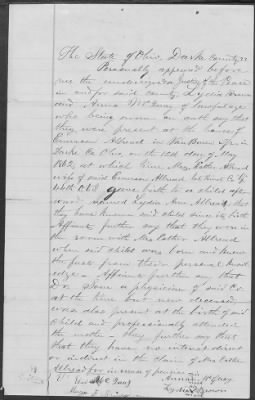 The State of Ohio, Darke County ss
Personally appeared before
me the undersigned a Justice of the Peace
in and for said County Lydia
and Anna McGuay of lawful age
who being sworn on oath say that
they were present at the house of
Emerson Allread in Van Buren Tp in
Darke Co Ohio, on the 12th day of May
1862, at which time Mrs. Esther Allread
wife of said Emerson Allread
O.V.I. gave birth to a child after
ward named Lydia Ann Allread that
they have known said child since its birth
Affiants further say that they were in
the room with Mrs Esther Allread
when said child was born and know
the fact from their personal know
ledge - Affiants further say that
Dr a physician of said Co
at the time but now deceased,
was also present at the birth of said
child and professionally attended
the mother - they further say that
they have no interest direct
or indirect in the claim of Mrs Esther
Allread for increase of pension
Anna
Lydia